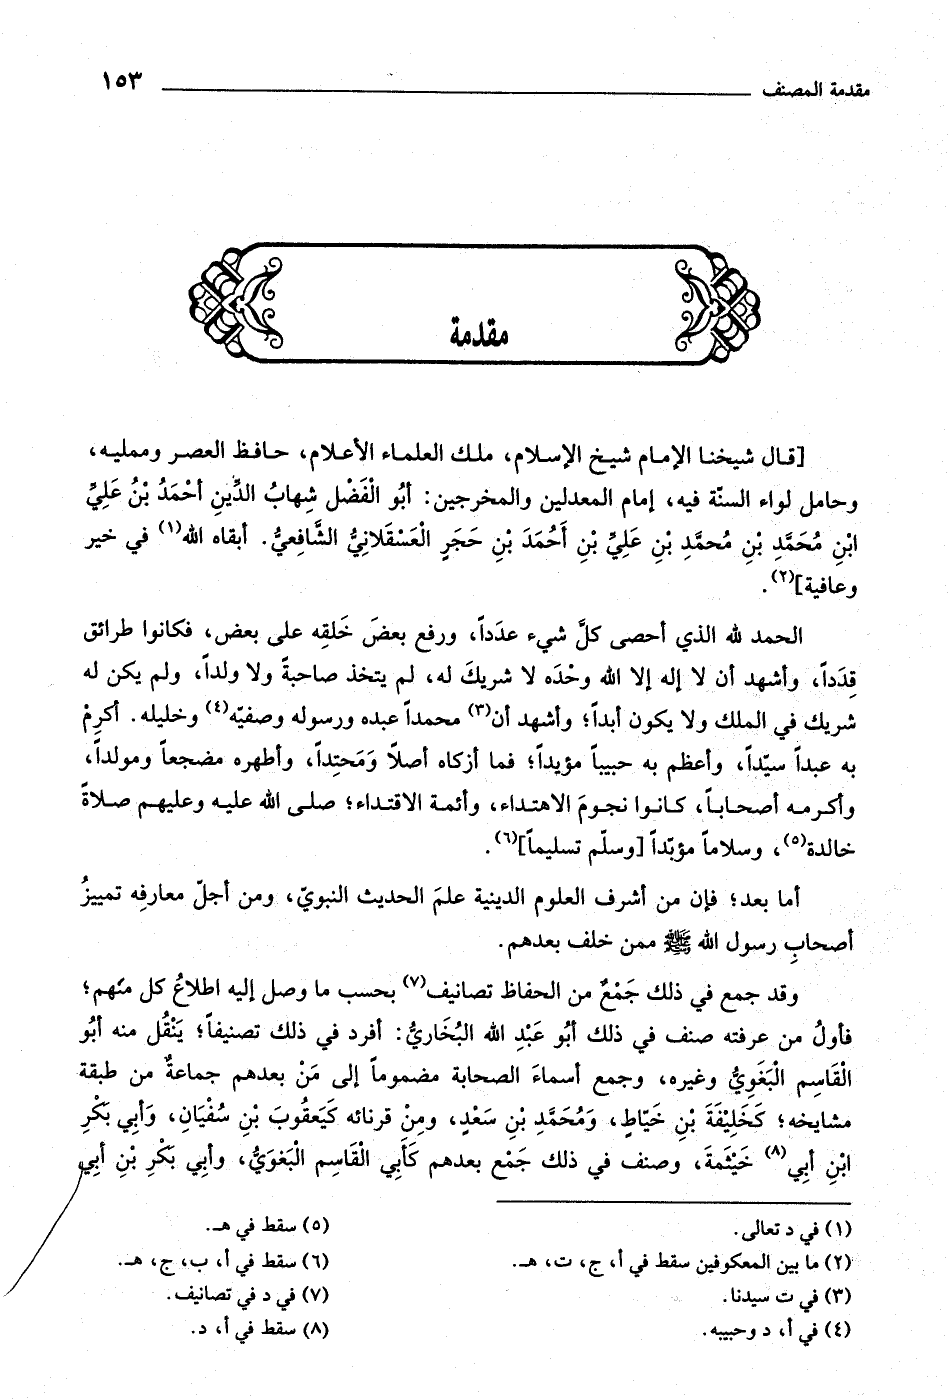 مقدمة المصنف ١٥٣
مقدمة
[قال شيخنا الإمام شيخ الإسلام، ملك العلماء الأعلام، حافظ العصر وممليه،
وحامل لواء السنّة فيه، إمام المعدلين والمخرجين: أبُو الْفَضْل شِهابُ الدِّينِ أحْمَدُ بْنُ عَلِيِّ
ابْنِ مُحَمَّدِ بْنِ مُحمَّدِ بْنِ عَلِيِّ بْنِ أَحُمَدَ بْنِ حَجَرٍ الْعَسْقَلانِيُّ الشَّافِعيُّ. أبقاه الله(١) في خير
وعافية](٢).
الحمد لله الذي أحصى كلَّ شيء عدَداً، ورفع بعضَ خَلقِه على بعض، فكانوا طرائق
قِدَداً، وأشهد أن لا إله إلا الله وحْدَه لا شريكَ له، لم يتخذ صاحبةً ولا ولداً، ولم يكن له
شريك في الملك ولا يكون أبداً؛ وأشهد أن(٣) محمداً عبده ورسوله وصفيّه(٤) وخليله. أكرِمْ
به عبداً سيّداً، وأعظم به حبيباً مؤيداً؛ فما أزكاه أصلاً وَمَحتِداً، وأطهره مضجعاً ومولداً،
وأكرمه أصحاباً، كانوا نجومَ الاهتداء، وأئمة الاقتداء؛ صلى الله عليه وعليهم صلاةً
خالدة(٥)، وسلاماً مؤبّداً [وسلّم تسليماً](٦).
أما بعد؛ فإن من أشرف العلوم الدينية علمَ الحديث النبويّ، ومن أجلّ معارفِه تمييزُ
أصحابِ رسول الله ﷺ ممن خلف بعدهم.
وقد جمع في ذلك جَمْعٌ من الحفاظ تصانيف(٧) بحسب ما وصل إليه اطلاعُ كل منهم؛
فأولُ من عرفته صنف في ذلك أبُو عَبْدِ الله البُخَاريُّ: أفرد في ذلك تصنيفاً؛ يَنْقُل منه أبُو
الْقَاسِم الْبَغَوِيُّ وغيره، وجمع أسماءَ الصحابة مضموماً إلى مَنْ بعدهم جماعةٌ من طبقة
مشايخه؛ كَخَلِيْفَةَ بْنِ خَيّاطٍ، وَمُحَمَّدِ بْنِ سَعْدٍ، ومِنْ قرنائه كَيَعقُوبَ بْنِ سُفْيَانِ، وَأبي بَكْرِ
ابْنِ أبِي(٨) خَيْثَمةَ، وصنف في ذلك جَمْع بعدهم كَأَبِي الْقَاسِم الْبَغوَيُّ، وأبي بَكْرِ بْنِ أبِي
(١) في د تعالى.
(٢) ما بين المعكوفين سقط في أ، ج، ت، هـ.
(٣) في ت سيدنا.
(٤) في أ، د وحبيبه.
(٥) سقط في هـ.
(٦) سقط في أ، ب، ج، هـ.
(٧) في د في تصانيف.
(٨) سقط في أ، د.